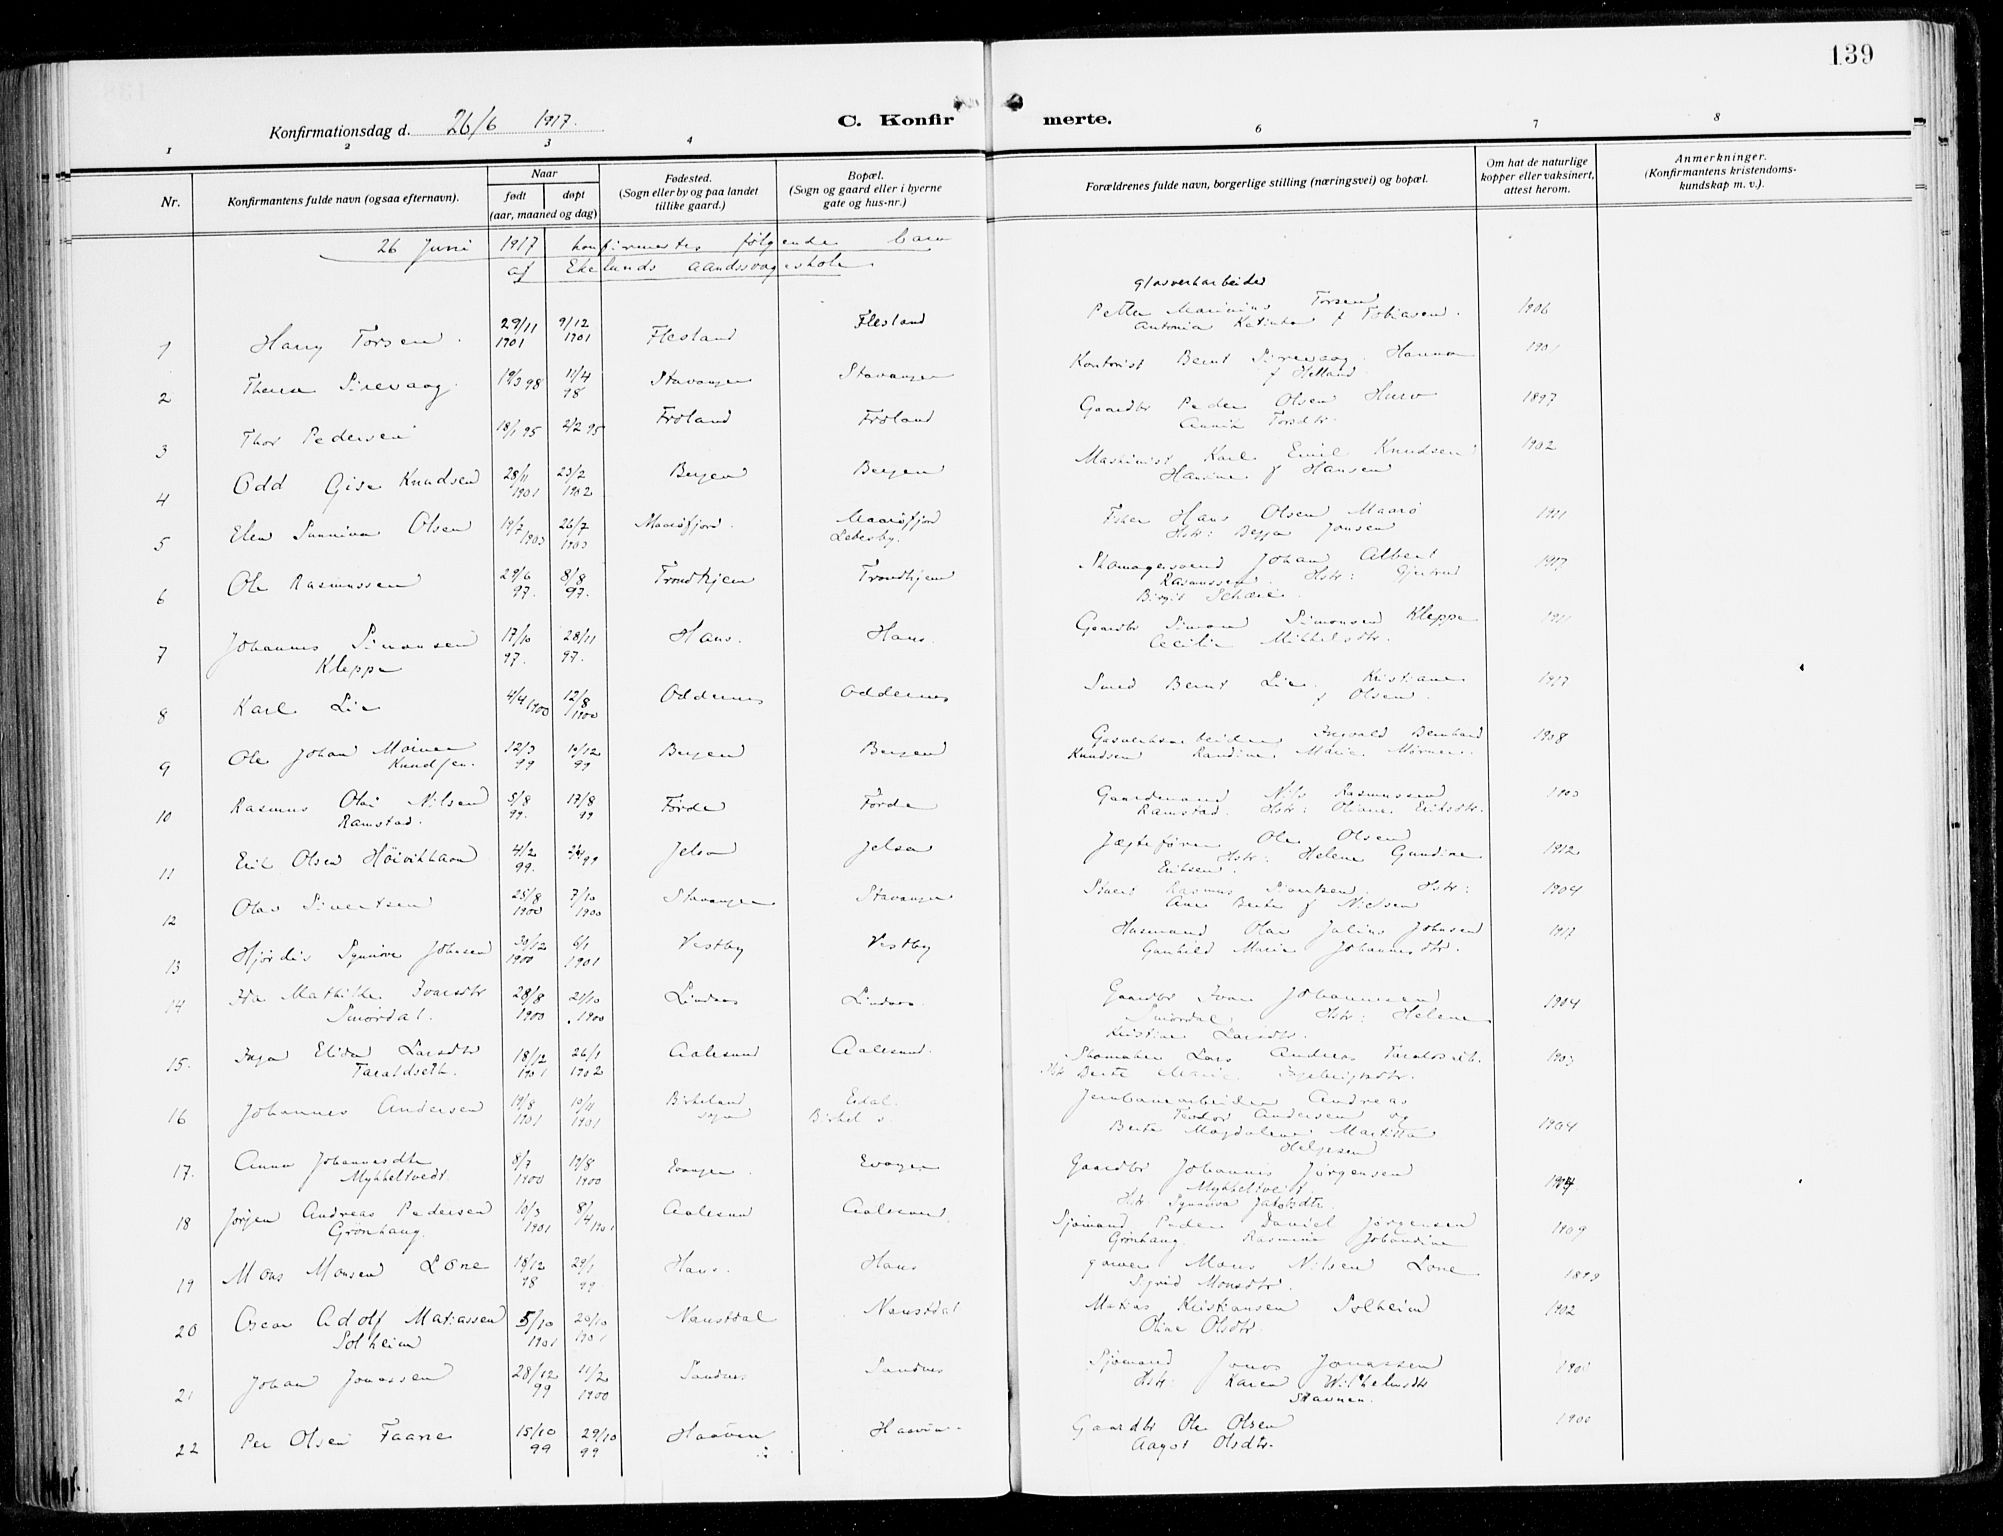 139
Konfirmationsdag d. 26/6 1917.
C. Konfirmerte.
1 2 3 4 6 7 8
Nr.
Konfirmantens fulde navn (ogsaa efternavn).
Naar
født døpt
(aar, maaned og dag)
Fødested.
(Sogn eller by og paa landet
tillike gaard.)
Bopæl.
(Sogn og gaard eller i byerne
gate og hus-nr.)
Forældrenes fulde navn, borgerlige stilling (næringsvei) og bopæl.
Om hat de naturlige
kopper eller vaksinert,
attest herom.
Anmerkninger.
(Konfirmantens kristendoms-
kundskap m. v.).
26 Juni 1917 konfirmertes følgende barn
af Ekelunds aandssvageskole
glasverkarbeider
1 Harry Torsen. 29/11 1901 9/12 1901 Flesland Flesland Petter Marinius Torsen 1906
Antonia Katinka f Tobiasen.
2 Theresa Sirevaag. 19/3 98 11/4 98 Stavanger Stavanger Kontorist Bernt Sirevaag. Hanna 1901
f Helland.
3 Thor Pedersen 18/1 95 2/2 95 Froland Froland Gaardbr Peder Olsen 1897
Torsdtr.
4 Odd Knudsen 28/11 1901 23/2 1902 Bergen Bergen Maskinist Karl Emil Knudsen 1902
Hansine f Hansen
5 Elen Sunniva Olsen 19/7 1903 26/7 1903 Maarøfjord. Maarøfjord Fisker Hans Olsen Maarø 1911
Lebesby. Hstr: Jonsen
6 Ole Rasmussen 29/6 97. 8/8 97. Trondhjem Trondhjem Skomagersvend Johan Albert 1917
Rasmussen. Hstr: Gjertrud
Birgit
7 Johannes Simonsen 17/10 97. 28/11 97. Haus. Haus. Gaardbr Simon Simonsen Kleppe 1911
Kleppe Cecilie Mikkelsdtr.
8 Karl Lie 4/4 1900 12/8 1900 Oddernes Oddernes Smed Bernt Lie. Kristiane 1917
f Olsen.
9 Ole Johan 12/3 99 10/12 99 Bergen Bergen Gasverksarbeider Ingvald Bernhard 1908
Knudsen. Knudsen Randine Marie
10 Rasmus Olai Nilsen 5/8 99. 17/8 99 Førde Førde Gaardmand Nils Rasmussen 1903
Ramstad. Ramstad. Hstr: Oliane Eriksdtr.
11 Erik Olsen 4/2 99. 99 Jelsa Jelsa Jægtefører Ole Olsen 1912
Hstr: Helene Gundine
Eriksen.
12 Olav Sivertsen 25/8 1900 7/10 1900 Stavanger Stavanger Rasmus Sivertsen. Hstr: 1904
Ane Berte f Nielsen
13 Hjørdis Synnøve Johnsen 30/12 1900 6/1 1901 Vestby Vestby Husmand Olav Julius Johnsen 1917
Gunhild Marie Johannesdtr.
14 Ida Mathilde Ivarsdtr 28/8 1900 21/10 1900 Lindaas Lindaas Gaardbr Ivar Johannesen 1904
Smørdal. Smørdal. Hstr: Helene
Kristine Larsdtr.
15. Inga Elida Larsdtr 18/12 1901 26/1 1902 Aalesund Aalesund. Skomaker Lars Andreas Taraldset. 1903
Taraldseth. Hstr Berte Marie Ingebrigtsdtr.
16 Johannes Andersen 19/8 1901 10/11 1901 Birkeland Birkel s. Jernbanearbeider Andreas
sogn Teodor Andersen og 1904
Berte Magdalene
Helgesen
17. Anna Johannesdtr 8/7 1900 19/8 1900 Evanger. Evanger Gaardbr Johannes Jørgensen
Mykkeltvedt. Mykkeltveit.
Hstr Synneva Jakobsdtr.
18 Jørgen Andreas Pedersen 10/3 1901 8/4 1901 Aalesund Aalesund. Sjømand Peder Daniel Jørgensen 1909
Grønhaug. Grønhaug. Rasmine Johandine
19 Mons Monsen Lone 18/12 98 29/1 99. Haus. Haus Mons Nilsen Lone 1899
Sigrid Monsdtr.
20 Oscar Adolf Matiassen 5/10 1901 20/10 1901 Naustdal Naustdal Matias Kristiansen Solheim 1902
Solheim Oline Olsdtr.
21 Johan Jonassen 28/12 99 11/2 1900 Sandnes Sandnes Sjømand Jonas Jonassen 1901
Hstr: Karen Wilhelmsdtr
Stavnem.
22 Per Olsen Faane 15/10 99 29/10 99 Gaardbr Ole Olsen 1900
Aagot Olsdtr.